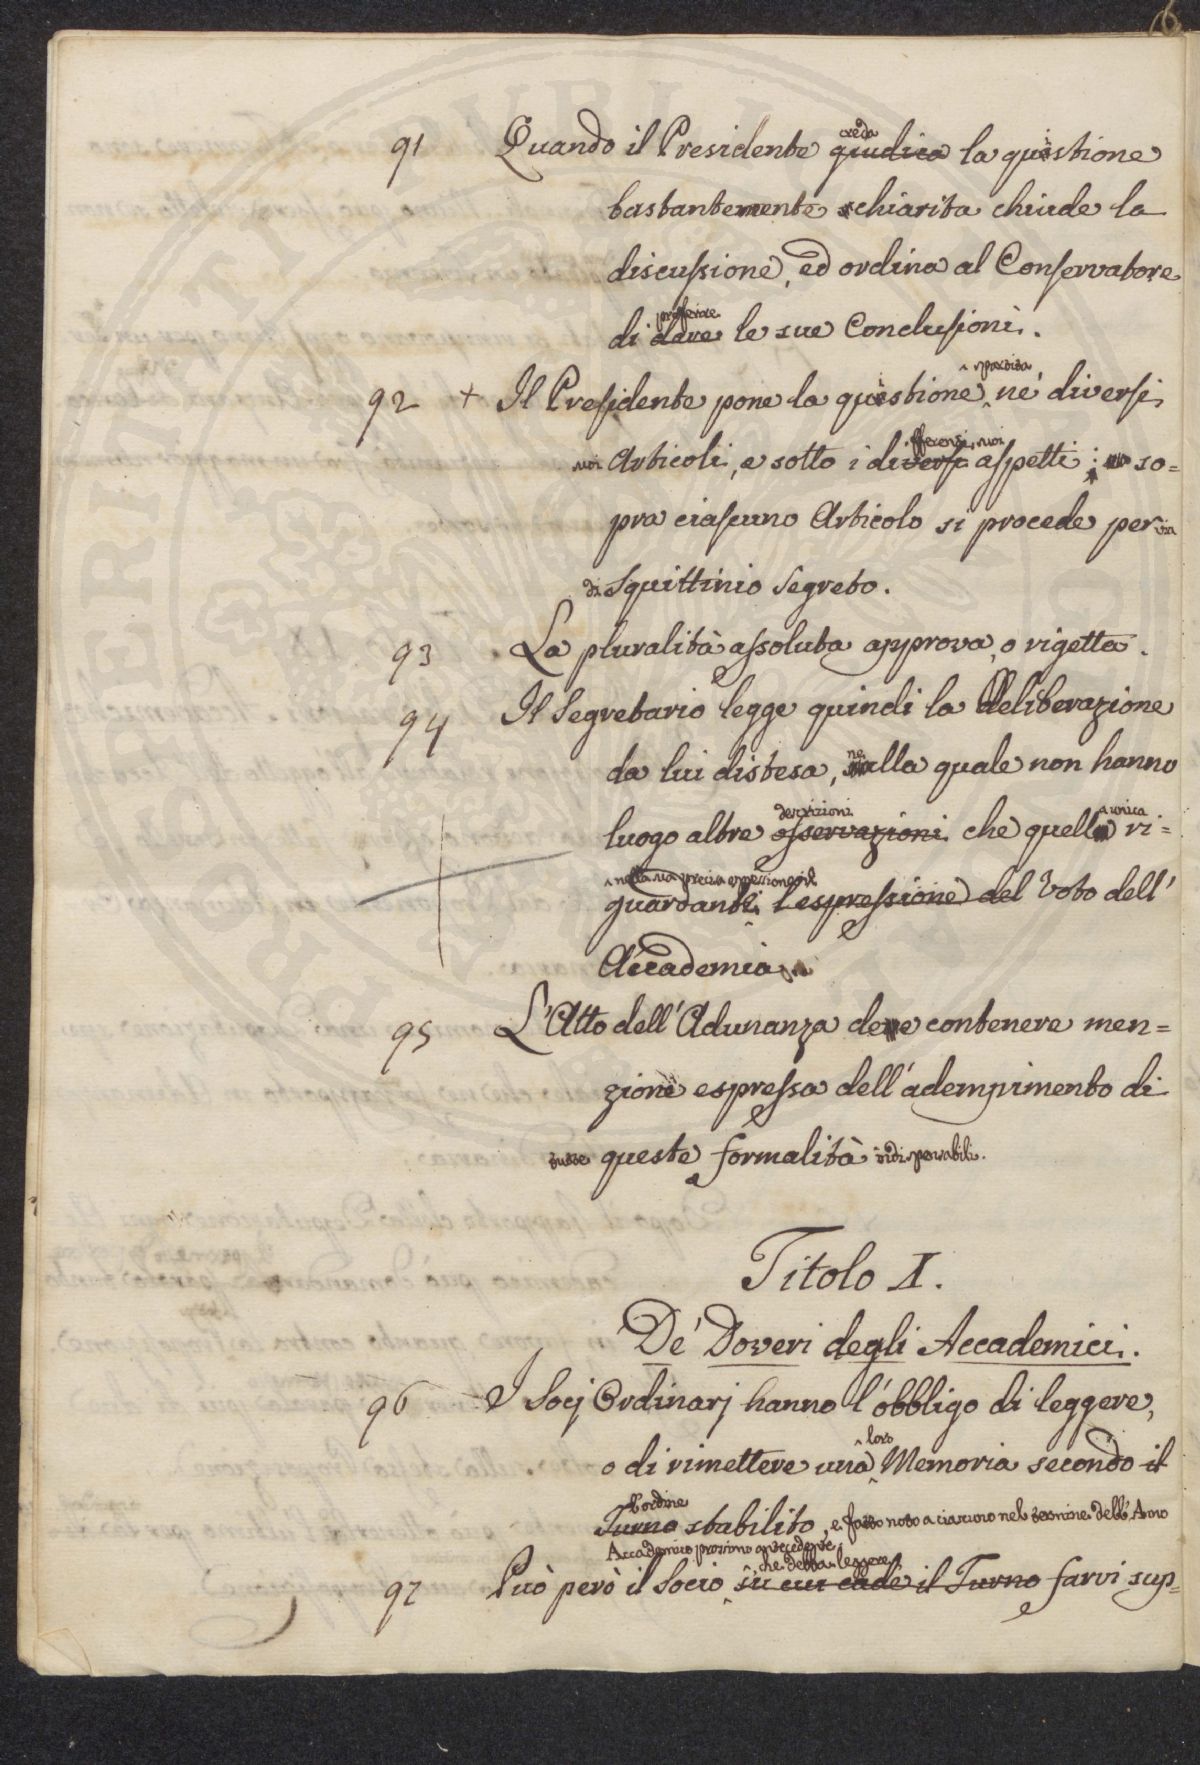 6
creda
91 Quando il Presidente giudica la quistione
bastantemente schiarita chiude la
discussione, ed ordina al Conservatore
proferire
di dare le sue Conclusioni.
spartita
92 + Il Presidente pone la quistione, ne' diversi
fferensi, suoi
suoi Articoli, e sotto i diversi aspetti; so=
pra ciascuno Articolo si procede per via
di Squittinio Segreto.
93 La pluralità assoluta approva, o rigetta.
94 Il Segretario legge quindi la Deliberazione
ne
da lui distesa, alla quale non hanno
decisioni unica
luogo altre osservazioni che quella ri=
nella sua precisa espressione il
guardante l'espressione del Voto dell'
Accademia
95 L'Atto dell'Adunanza deve contenere men=
zione espressa dell'adempimento di
tutte queste formalità indispensabili.
Titolo X.
De' Doveri degli Accademici.
96 I Socj Ordinarj hanno l'obbligo di leggere,
loro
o di rimettere una Memoria secondo il
l'ordine
Turno stabilito, e fatto noto a ciascuno nel termine dell'Anno
Accademico prossimo antecedente
che debba leggere
97 Può però il Socio su cui cade il Turno farvi sup=